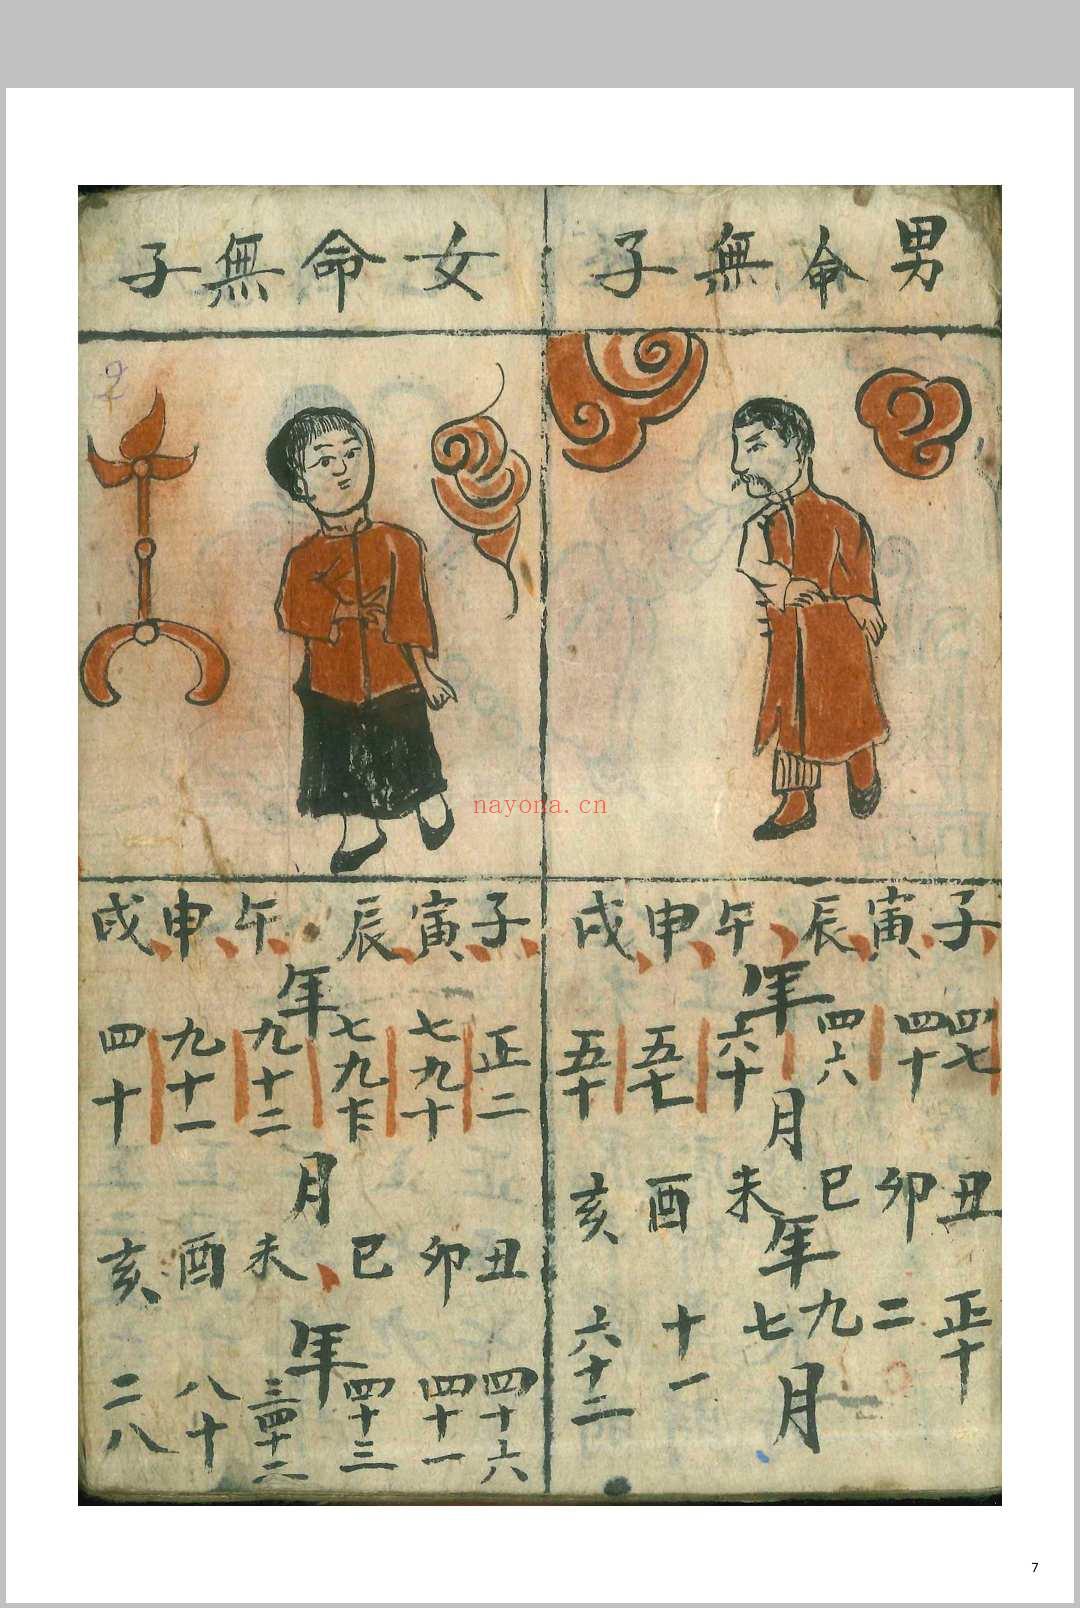 男命無子
子寅辰午申戌
年
四七 四十 四六 六十 五七 五十
月
丑卯巳未酉亥
年
正十 二 九 七 十一 六十二
月
女命無子
2
子寅辰午申戌
年
正二 七九十 七九 九十二 九十一 四十
月
丑卯巳未酉亥
年
四十六 四十一 四十三 三四十二 八十 二八
nayona.cn
7